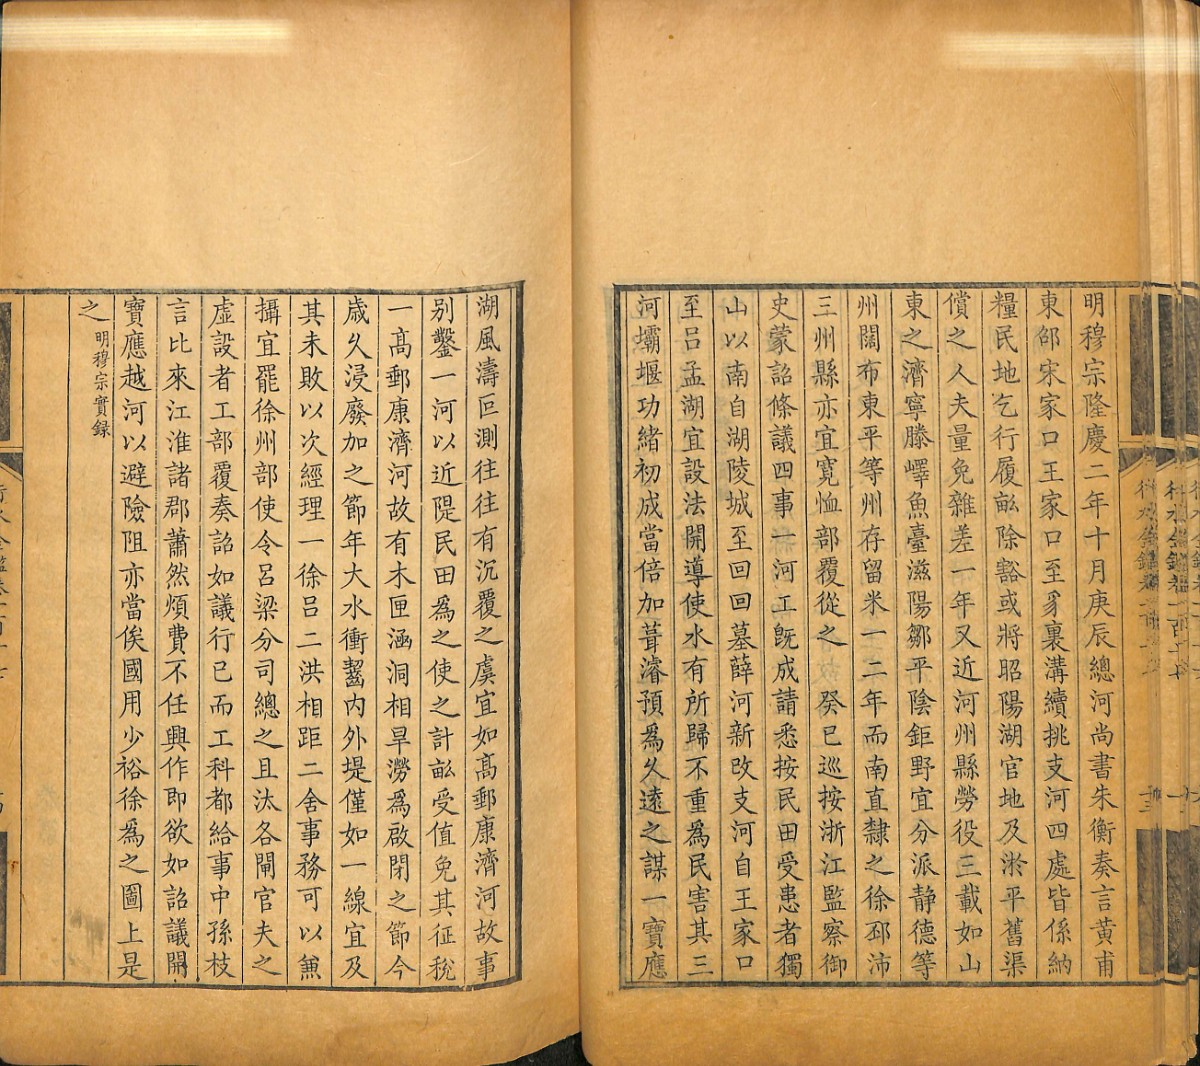 明穆宗隆慶二年十月庚辰總河尚書朱衡奏言黃甫
東邵宋家口王家口至豸裏溝續挑支河四處皆係納
糧民地乞行履畝除豁或將昭陽湖官地及淤平舊渠
償之人夫量免雜差一年又近河州縣勞役三載如山
東之濟寧滕嶧魚臺滋陽鄒平陰鉅野宜分派靜德等
州闊布東平等州存留米一二年而南直隸之徐邳沛
三州縣亦宜寬恤部覆從之 癸巳巡按浙江監察御
史蒙詔條議四事一河工既成請悉按民田受患者獨
山以南自湖陵城至回回墓薛河新改支河自王家口
至呂孟湖宜設法開導使水有所歸不重為民害其三
河壩堰功緒初成當倍加葺濬預為久遠之謀一寶應
湖風濤叵測往往有沉覆之虞宜如高郵康濟河故事
別鑿一河以近隄民田為之使之計畝受值免其征稅
一高郵康濟河故有木匣涵洞相旱澇為啟閉之節今
歲久浸廢加之節年大水衝齧內外堤僅如一線宜及
其未敗以次經理一徐呂二洪相距二舍事務可以兼
攝宜罷徐州部使令呂梁分司總之且汰各閘官夫之
虛設者工部覆奏詔如議行已而工科都給事中孫枝
言比來江淮諸郡蕭然煩費不任興作即欲如詔議開
寶應越河以避險阻亦當俟國用少裕徐為之圖上是
之 明穆宗實錄